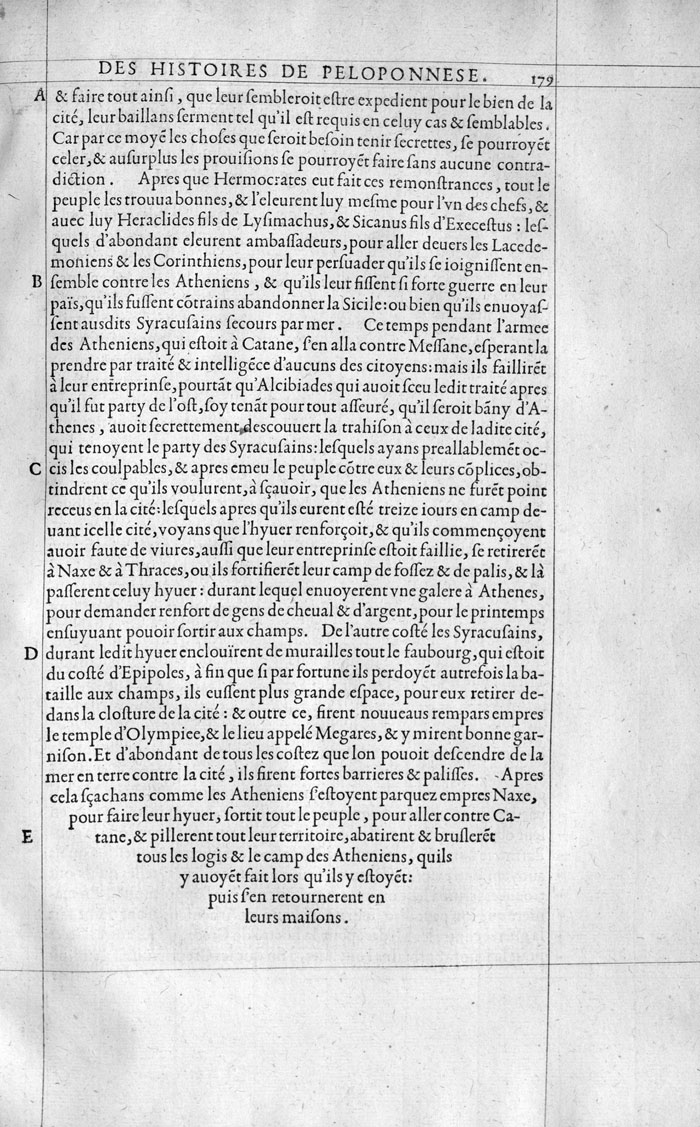 DES HISTOIRES DE PELOPONNESE. 179
A & faire tout ainſi, que leur ſembleroit eſtre expedient pour le bien de la
cité, leur baillans ſerment tel qu'il eſt requis en celuy cas & ſemblables.
Car par ce moyẽ les choſes que ſeroit beſoin tenir ſecrettes, ſe pourroyẽt
celer, & auſurplus les prouiſions ſe pourroyẽt faire ſans aucune contra-
diction. Apres que Hermocrates eut fait ces remonſtrances, tout le
peuple les trouua bonnes, & l'eleurent luy meſme pour l'vn des chefs, &
auec luy Heraclides fils de Lyſimachus, & Sicanus fils d'Execeſtus : leſ-
quels d'abondant eleurent ambaſſadeurs, pour aller deuers les Lacede-
moniens & les Corinthiens, pour leur perſuader qu'ils ſe ioigniſſent en-
B ſemble contre les Atheniens, & qu'ils leur fiſſent ſi forte guerre en leur
païs, qu'ils fuſſent cõtrains abandonner la Sicile: ou bien qu'ils enuoyaſ-
ſent auſdits Syracuſains ſecours par mer. Ce temps pendant l'armee
des Atheniens, qui eſtoit à Catane, ſ'en alla contre Meſſane, eſperant la
prendre par traité & intelligẽce d'aucuns des citoyens: mais ils faillirẽt
à leur entreprinſe, pourtãt qu'Alcibiades qui auoit ſceu ledit traité apres
qu'il fut party de l'oſt, ſoy tenãt pour tout aſſeuré, qu'il ſeroit bãny d'A-
thenes, auoit ſecrettement deſcouuert la trahiſon à ceux de ladite cité,
qui tenoyent le party des Syracuſains: leſquels ayans preallablemẽt oc-
C cis les coulpables, & apres emeu le peuple cõtre eux & leurs cõplices, ob-
tindrent ce qu'ils voulurent, à ſçauoir, que les Atheniens ne furẽt point
receus en la cité: leſquels apres qu'ils eurent eſté treize iours en camp de-
uant icelle cité, voyans que l'hyuer renforçoit, & qu'ils commençoyent
auoir faute de viures, auſſi que leur entreprinſe eſtoit faillie, ſe retirerẽt
à Naxe & à Thraces, ou ils fortifierẽt leur camp de foſſez & de palis, & là
paſſerent celuy hyuer : durant lequel enuoyerent vne galere à Athenes,
pour demander renfort de gens de cheual & d'argent, pour le printemps
enſuyuant pouoir ſortir aux champs. De l'autre coſté les Syracuſains,
D durant ledit hyuer enclouïrent de murailles tout le faubourg, qui eſtoit
du coſté d'Epipoles, à fin que ſi par fortune ils perdoyẽt autrefois la ba-
taille aux champs, ils euſſent plus grande eſpace, pour eux retirer de-
dans la cloſture de la cité : & outre ce, firent nouueaus rempars empres
le temple d'Olympice, & le lieu appelé Megares, & y mirent bonne gar-
niſon. Et d'abondant de tous les coſtez que lon pouoit deſcendre de la
mer en terre contre la cité, ils firent fortes barrieres & paliſſes. Apres
cela ſçachans comme les Atheniens ſ'eſtoyent parquez empres Naxe,
pour faire leur hyuer, ſortit tout le peuple, pour aller contre Ca-
E tane, & pillerent tout leur territoire, abatirent & bruſlerẽt
tous les logis & le camp des Atheniens, quils
y auoyẽt fait lors qu'ils y eſtoyẽt:
puis ſ'en retournerent en
leurs maiſons.